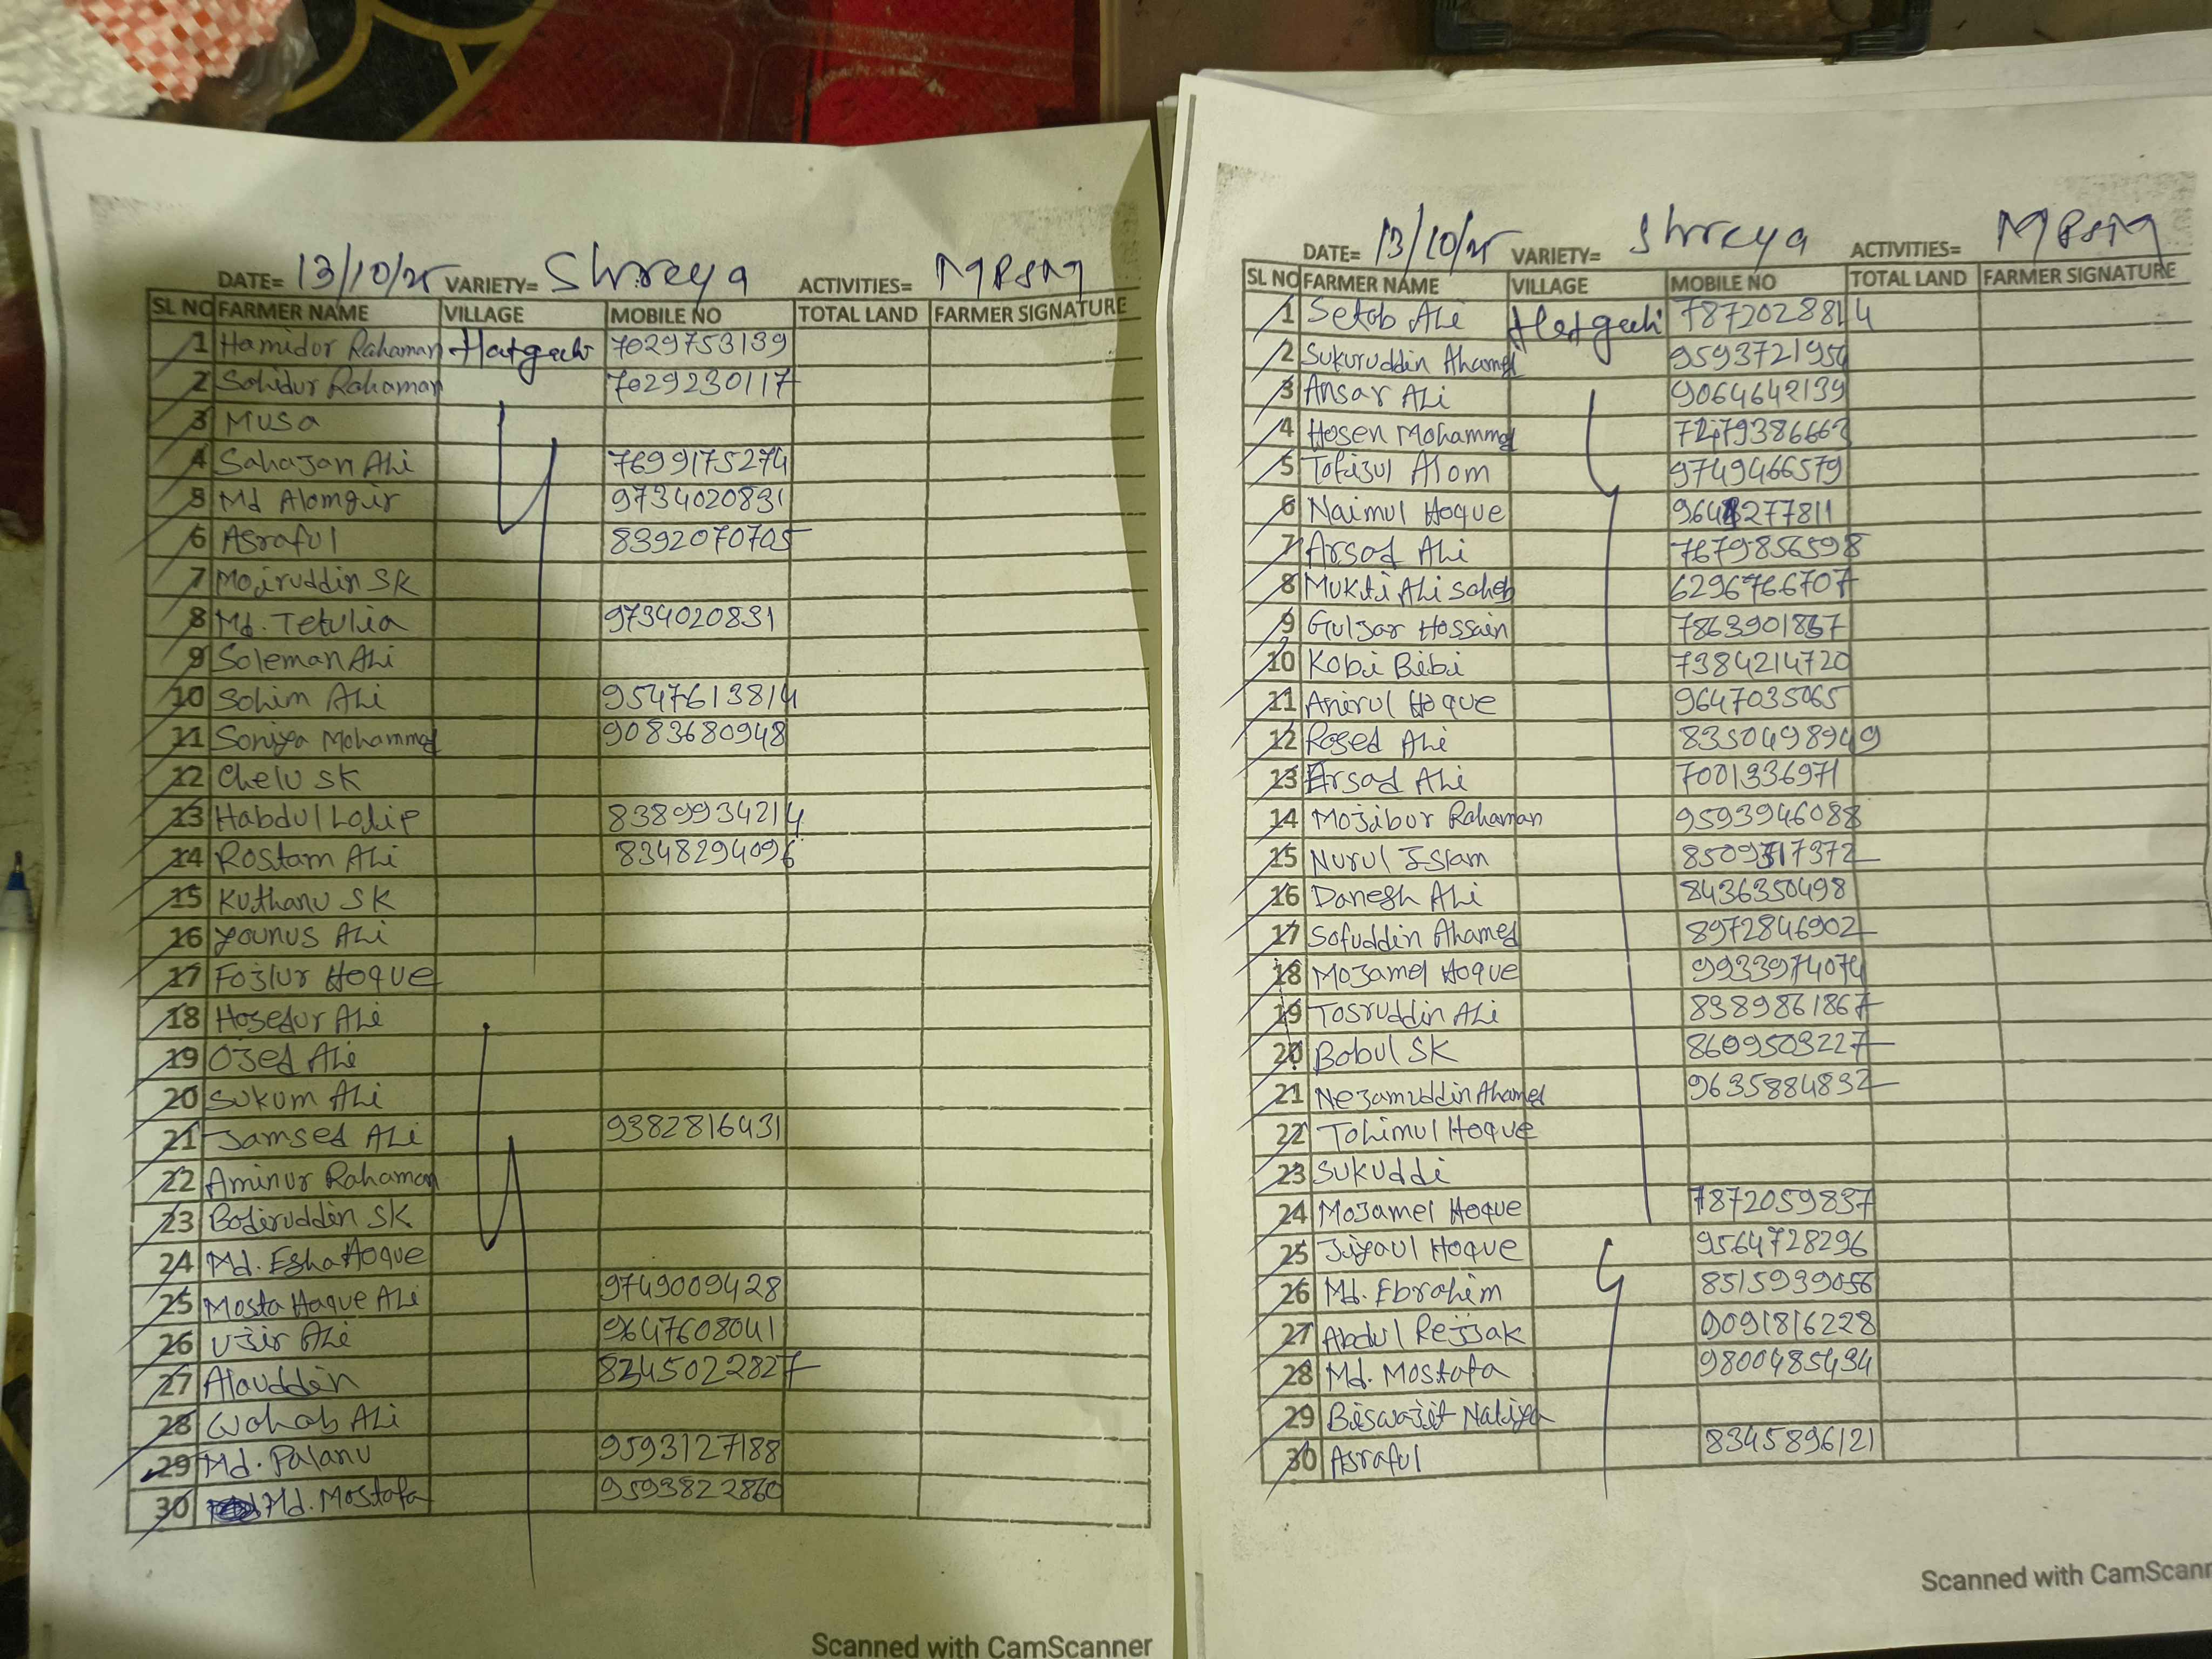 DATE= 13/10/25 VARIETY= Shreya ACTIVITIES= MPSM
SL NO FARMER NAME VILLAGE MOBILE NO TOTAL LAND FARMER SIGNATURE
1 Hamidur Rahaman 7029753139
2 Sohidur Rahaman 7029230117
3 Musa
4 Sahajan Ali 7699175274
5 Md Alomgir 9734020831
6 Asraful 8392070705
7 Moiruddin SK
8 Md. Tetulia 9734020831
9 Soleman Ali
10 Sohim Ali 9547613814
11 Soniya Mohammad 9083680948
12 Chelu SK
13 Habdul Lotip 8389934214
14 Rostam Ali 8348294096
15 Kuthanu SK
16 Younus Ali
17 Fojlur Hoque
18 Hosedur Ali
19 Ojed Ali
20 Sukum Ali
21 Jamsed Ali 9382816431
22 Aminur Rahaman
23 Bodiruddin SK
24 Md. Esha Hoque
25 Mosta Haque Ali 9749009428
26 Ujir Ali 9647608041
27 Alauddin 8345022827
28 Wohab Ali
29 Md. Palanu 9593127188
30 Md. Mostofa 9593822860
Scanned with CamScanner
DATE= 13/10/25 VARIETY= Shreya ACTIVITIES= MPSM
SL NO FARMER NAME VILLAGE MOBILE NO TOTAL LAND FARMER SIGNATURE
1 Setab Ali 7872028814
2 Sukuruddin Ahamed 9593721954
3 Ansar Ali 9064642139
4 Hosen Mohammad 7479386663
5 Tofijul Alom 9749466579
6 Naimul Hoque
7 Arsad Ali 7679856598
8 Mukti Ali Saheb 6296766707
9 Guljar Hossain 7863901867
10 Kobi Bibi 7384214720
11 Anirul Hoque 9647035065
12 Rosed Ali 8350498949
13 Ersad Ali 7001336971
14 Mojibur Rahaman 9593946088
15 Nurul Islam
16 Danesh Ali 8436350498
17 Sofuddin Ahamed 8972846902
18 Mojamel Hoque 9933974074
19 Tosruddin Ali 8389861867
20 Bobul SK 8609503227
21 Nejamuddin Ahamed 9635884832
22 Tohimul Hoque
23 Sukuddi
24 Mojamel Hoque 7872059837
25 Jiyaul Hoque 9564728296
26 Md. Ebrahim 8515939056
27 Abdul Rejjak 9091816228
28 Md. Mostofa 9800485434
29 Biswajit Naliya
30 Asraful 8345896121
Scanned with CamScann